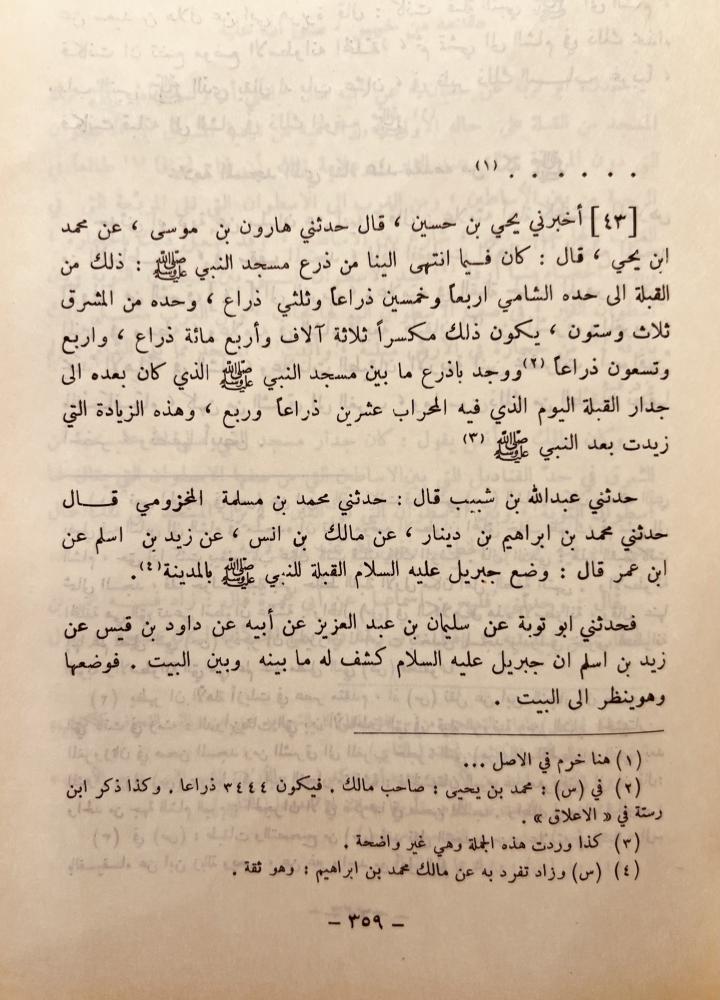 . . . . . . (١)
[٤٣] أخبرني يحي بن حسين ، قال حدثني هارون بن موسى ، عن محمد
ابن يحي ، قال : كان فيما انتهى الينا من ذرع مسجد النبي ﷺ : ذلك من
القبلة الى حده الشامي اربعاً وخمسين ذراعاً وثلثي ذراع ، وحده من المشرق
ثلاث وستون ، يكون ذلك مكسراً ثلاثة آلاف وأربع مائة ذراع ، واربع
وتسعون ذراعاً (٢) ووجد باذرع ما بين مسجد النبي ﷺ الذي كان بعده الى
جدار القبلة اليوم الذي فيه المحراب عشرين ذراعاً وربع ، وهذه الزيادة التي
زيدت بعد النبي ﷺ (٣)
حدثني عبدالله بن شبيب قال : حدثني محمد بن مسلمة المخزومي قـــال
حدثني محمد بن ابراهيم بن دينار ، عن مالك بن انس ، عن زيد بن اسلم عن
ابن عمر قال : وضع جبريل عليه السلام القبلة للنبي ﷺ بالمدينة(٤).
فحدثني ابو توبة عن سليمان بن عبد العزيز عن أبيه عن داود بن قيس عن
زيد بن اسلم ان جبريل عليه السلام كشف له ما بينه وبين البيت . فوضعها
وهوينظر الى البيت .
(١) هنا خرم في الاصل ...
(٢) في (س) : محمد بن يحيى : صاحب مالك . فيكون ٣٤٤٤ ذراعا . وكذا ذكر ابن
رستة في « الاعلاق » .
(٣) كذا وردت هذه الجملة وهي غير واضحة .
(٤) (س) وزاد تفرد به عن مالك محمد بن ابراهيم : وهو ثقة .
– ٣٥٩ –